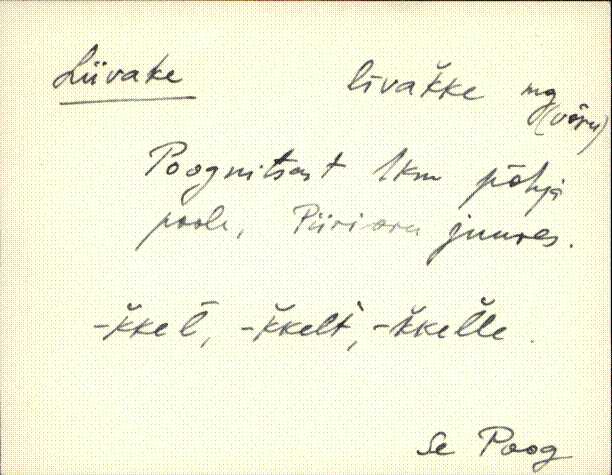 Liivake līvak̆ke mg
(võru)
Poognitsast 1km põhja
poole, Piirioru juures.
-k̆kel̄, -k̆kelt̀, -k̆kel̆le.
Se Poog